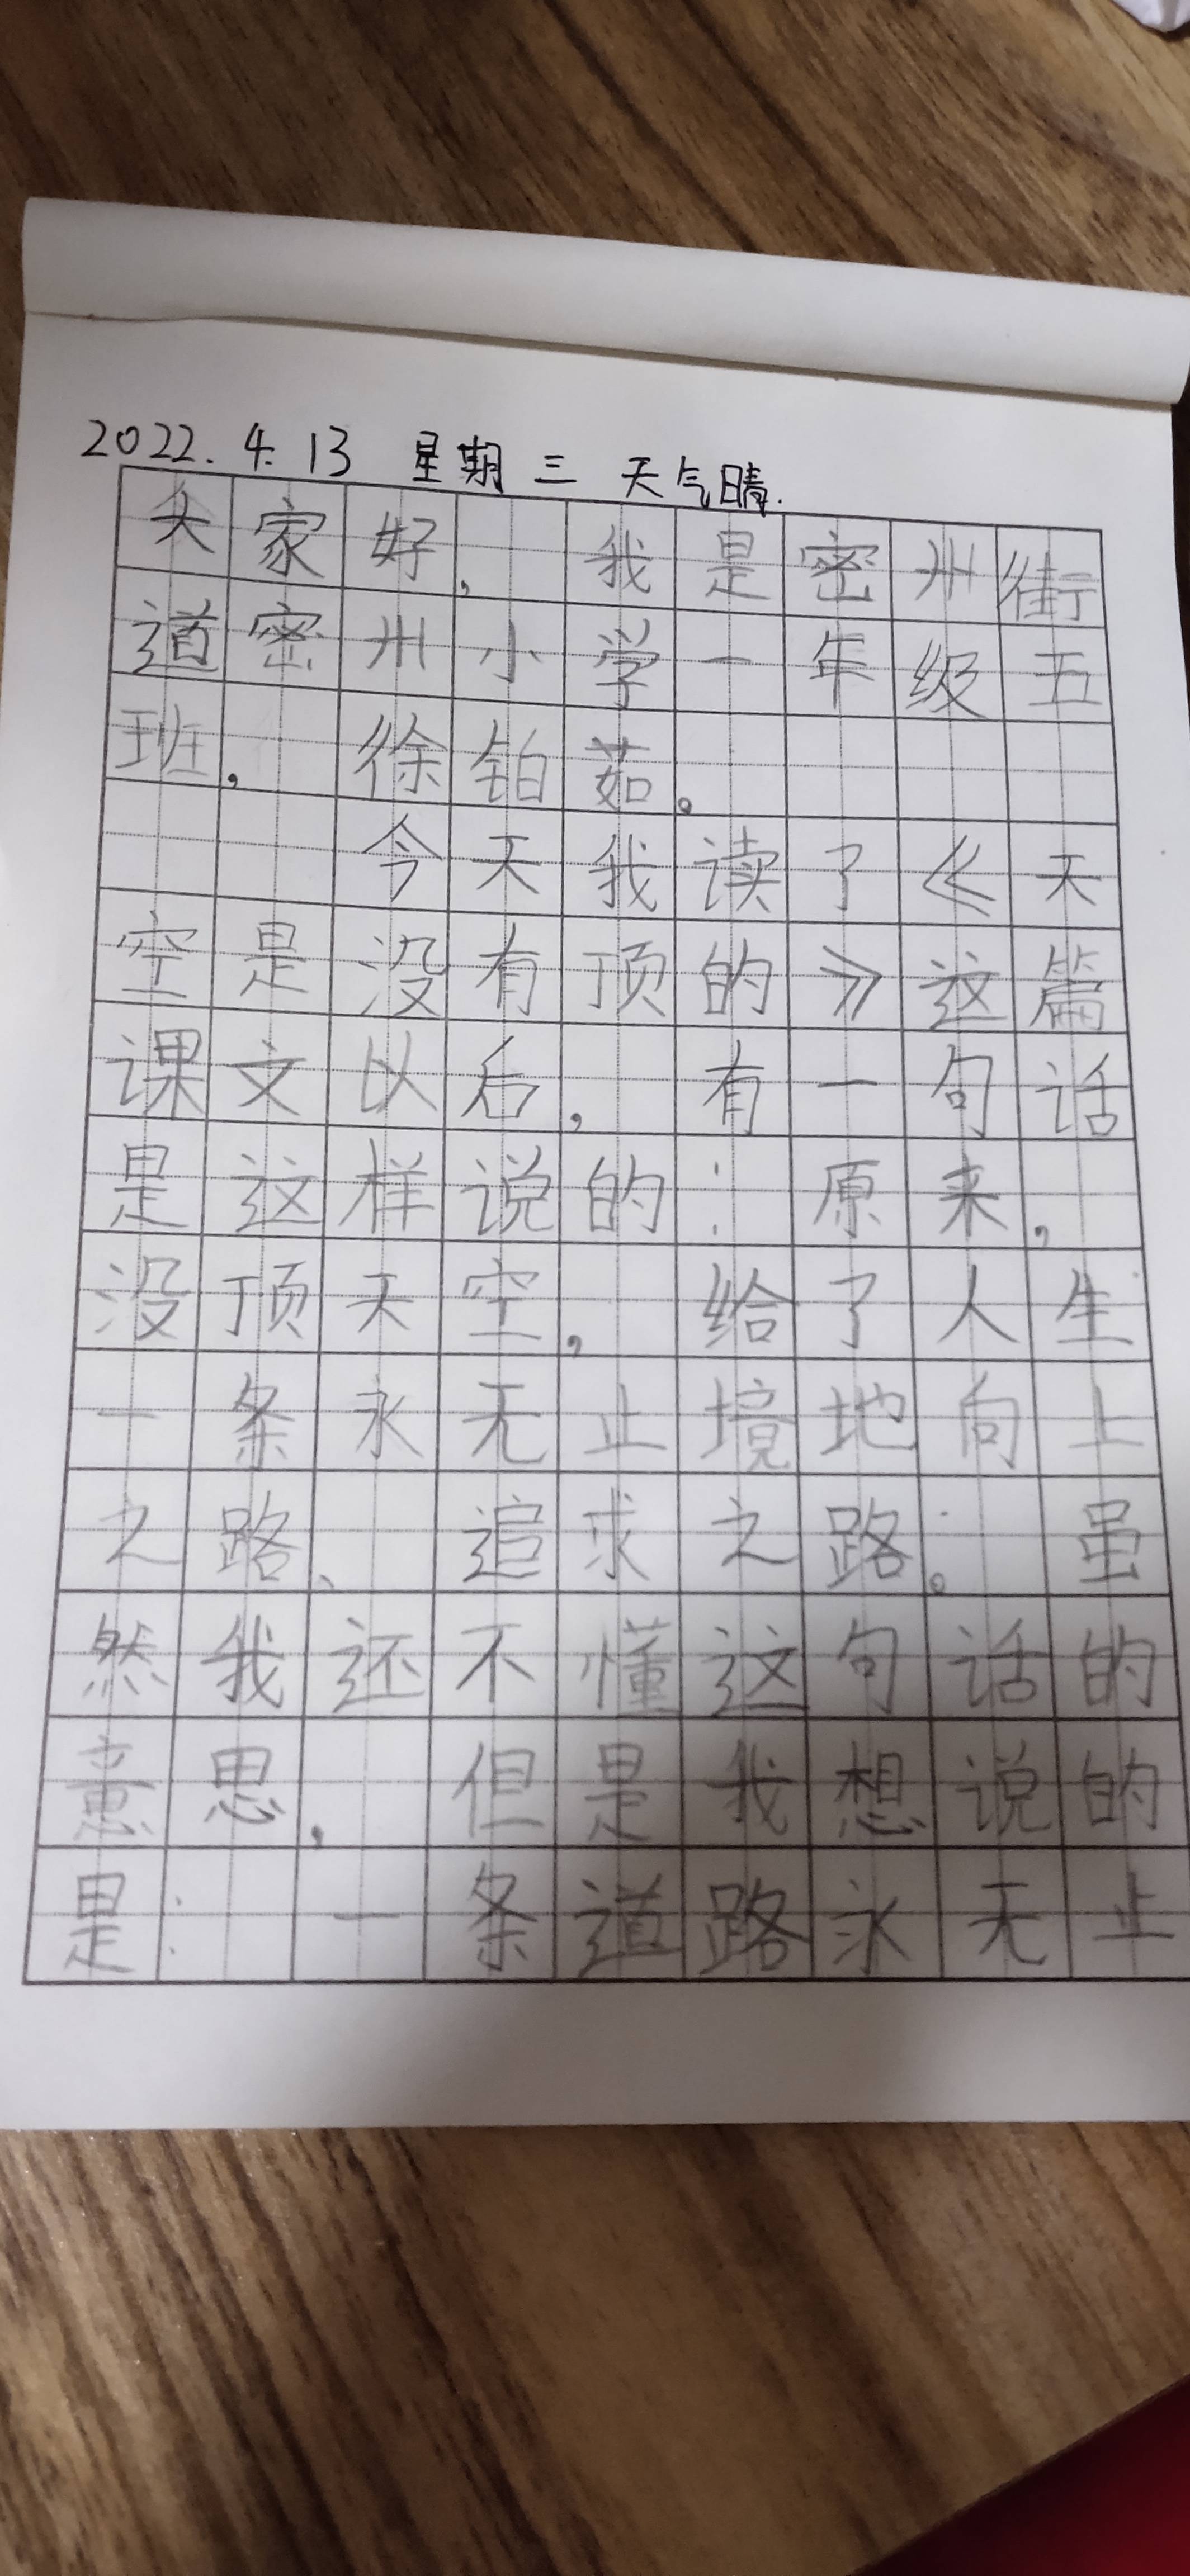 2022.4.13 星期三 天气晴.
大家好，我是密州街
道密州小学一年级五
班，徐铂茹。
今天我读了《天
空是没有顶的》这篇
课文以后，有一句话
是这样说的：原来，
没顶天空，给了人生
一条永无止境地向上
之路、追求之路。虽
然我还不懂这句话的
意思，但是我想说的
是：一条道路永无止